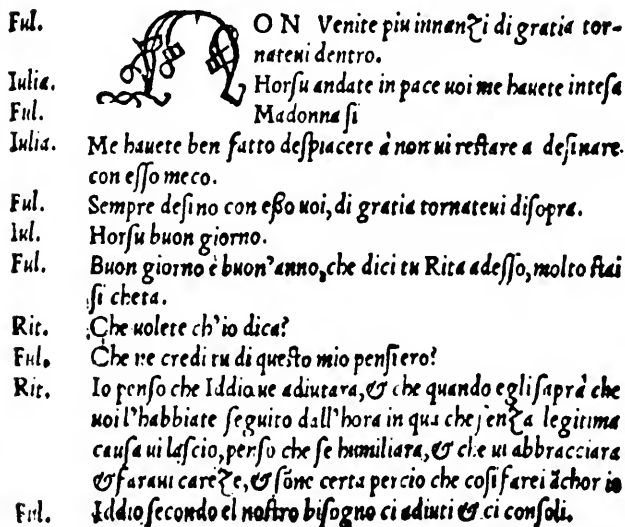 Ful. NON Venite piu innanzi di gratia tor-
nateui dentro.
Iulia. Horſu andate in pace uoi me hauete inteſa
Ful. Madonna ſi
Iulia. Me hauete ben fatto deſpiacere à non ui reſtare a deſinare.
con eſſo meco.
Ful. Sempre deſino con eßo uoi, di gratia tornateui diſopra.
Iul. Horſu buon giorno.
Ful. Buon giorno è buon'anno, che dici tu Rita adeſſo, molto ſtai
ſi cheta.
Rit. Che uolete ch'io dica?
Ful. Che ne credi tu di queſto mio penſiero?
Rit. Io penſo che Iddio ue adiutara, & che quando egli ſaprà che
uoi l'habbiate ſeguito dall'hora in qua che ſenza legitima
cauſa ui laſcio, perſo che ſe humiliara, & che ui abbracciara
& farani careze, & ſóne certa percio che coſi farei ãchor io
Ful. Iddio ſecondo el noſtro biſogno ci adiuti & ci conſoli.